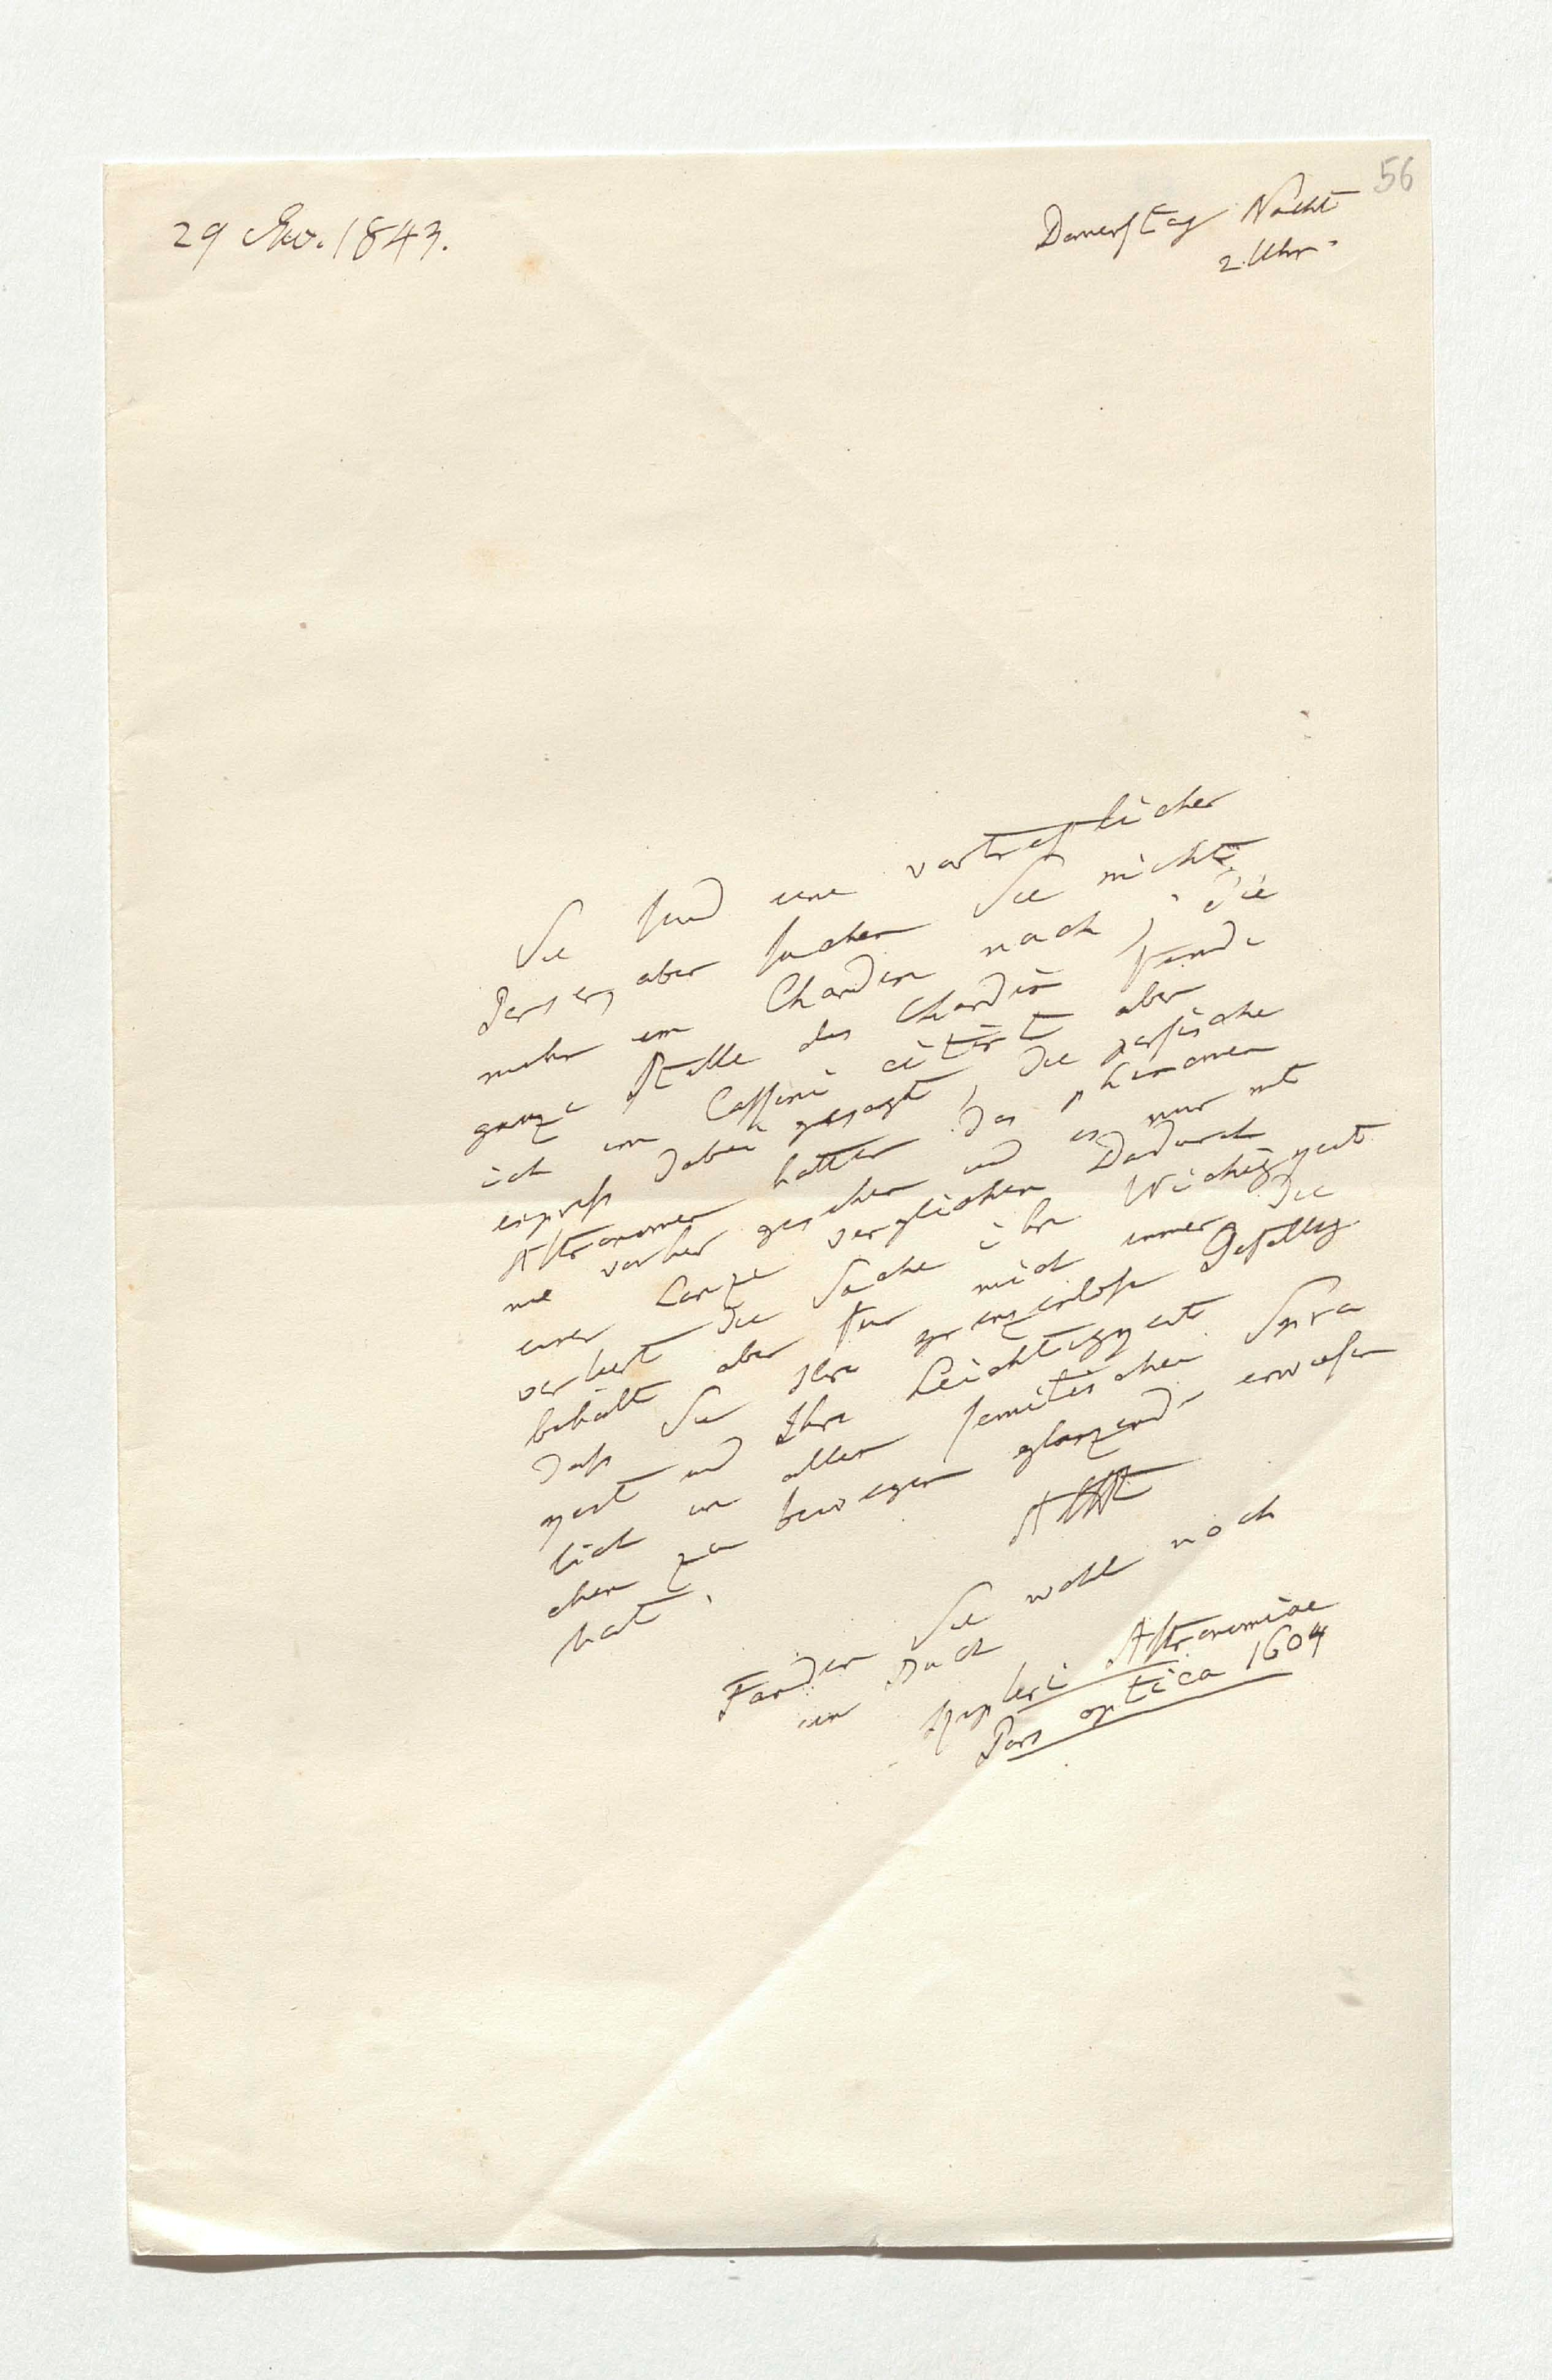 56
29 Nov. 1843.
Donnerstag Nacht
2 Uhr.
Sie sind ein vortreflicher
Perser, aber suchen Sie nicht
mehr im Chardin nach, die
ganze Stelle des Chardin finde
ich im Cassini citirt aber
express dabei gesagt, die persische
Astronomen hatten das phänomen
nie vorher gesehen und es nur mit
einer Lanze verglichen Dadurch
verliert die Sache ihre Wichtigkeit
behält aber für mich immer die
dass Sie Ihre grenzenlose Gefällig
keit und Ihre Leichtigkeit
sich in allen semitischen Spra
chen zu bewegen glänzend erwiesen
hat.
AHt
Fanden Sie wohl noch
ein Buch
Kepleri Astronomiae
Pars optica 1604